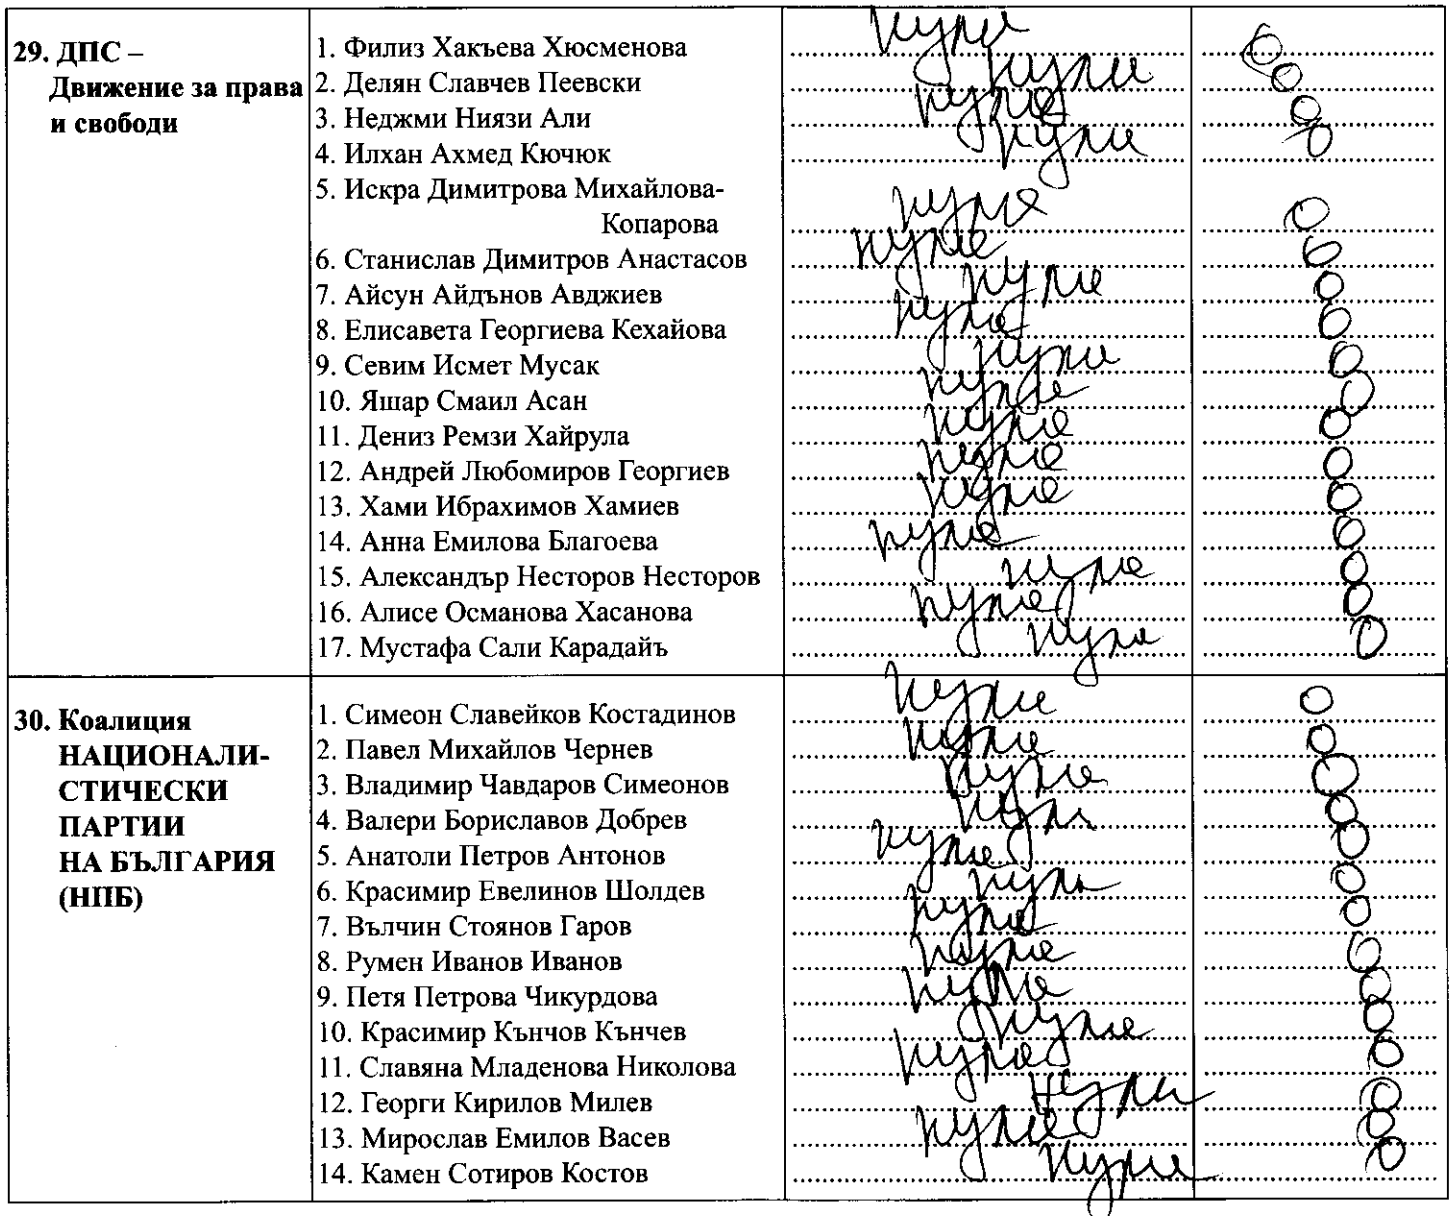 29. ДПС –
Движение за права
и свободи
1. Филиз Хакъева Хюсменова нула 0
2. Делян Славчев Пеевски нула 0
3. Неджми Ниязи Али нула 0
4. Илхан Ахмед Кючюк нула 0
5. Искра Димитрова Михайлова-
Копарова нула 0
6. Станислав Димитров Анастасов нула 0
7. Айсун Айдънов Авджиев нула 0
8. Елисавета Георгиева Кехайова нула 0
9. Севим Исмет Мусак нула 0
10. Яшар Смаил Асан нула 0
11. Дениз Ремзи Хайрула нула 0
12. Андрей Любомиров Георгиев нула 0
13. Хами Ибрахимов Хамиев нула 0
14. Анна Емилова Благоева нула 0
15. Александър Несторов Несторов нула 0
16. Алисе Османова Хасанова нула 0
17. Мустафа Сали Карадайъ нула 0
30. Коалиция
НАЦИОНАЛИ-
СТИЧЕСКИ
ПАРТИИ
НА БЪЛГАРИЯ
(НПБ)
1. Симеон Славейков Костадинов нула 0
2. Павел Михайлов Чернев нула 0
3. Владимир Чавдаров Симеонов нула 0
4. Валери Бориславов Добрев нула 0
5. Анатоли Петров Антонов нула 0
6. Красимир Евелинов Шолдев нула 0
7. Вълчин Стоянов Гаров нула 0
8. Румен Иванов Иванов нула 0
9. Петя Петрова Чикурдова нула 0
10. Красимир Кънчов Кънчев нула 0
11. Славяна Младенова Николова нула 0
12. Георги Кирилов Милев нула 0
13. Мирослав Емилов Васев нула 0
14. Камен Сотиров Костов нула 0